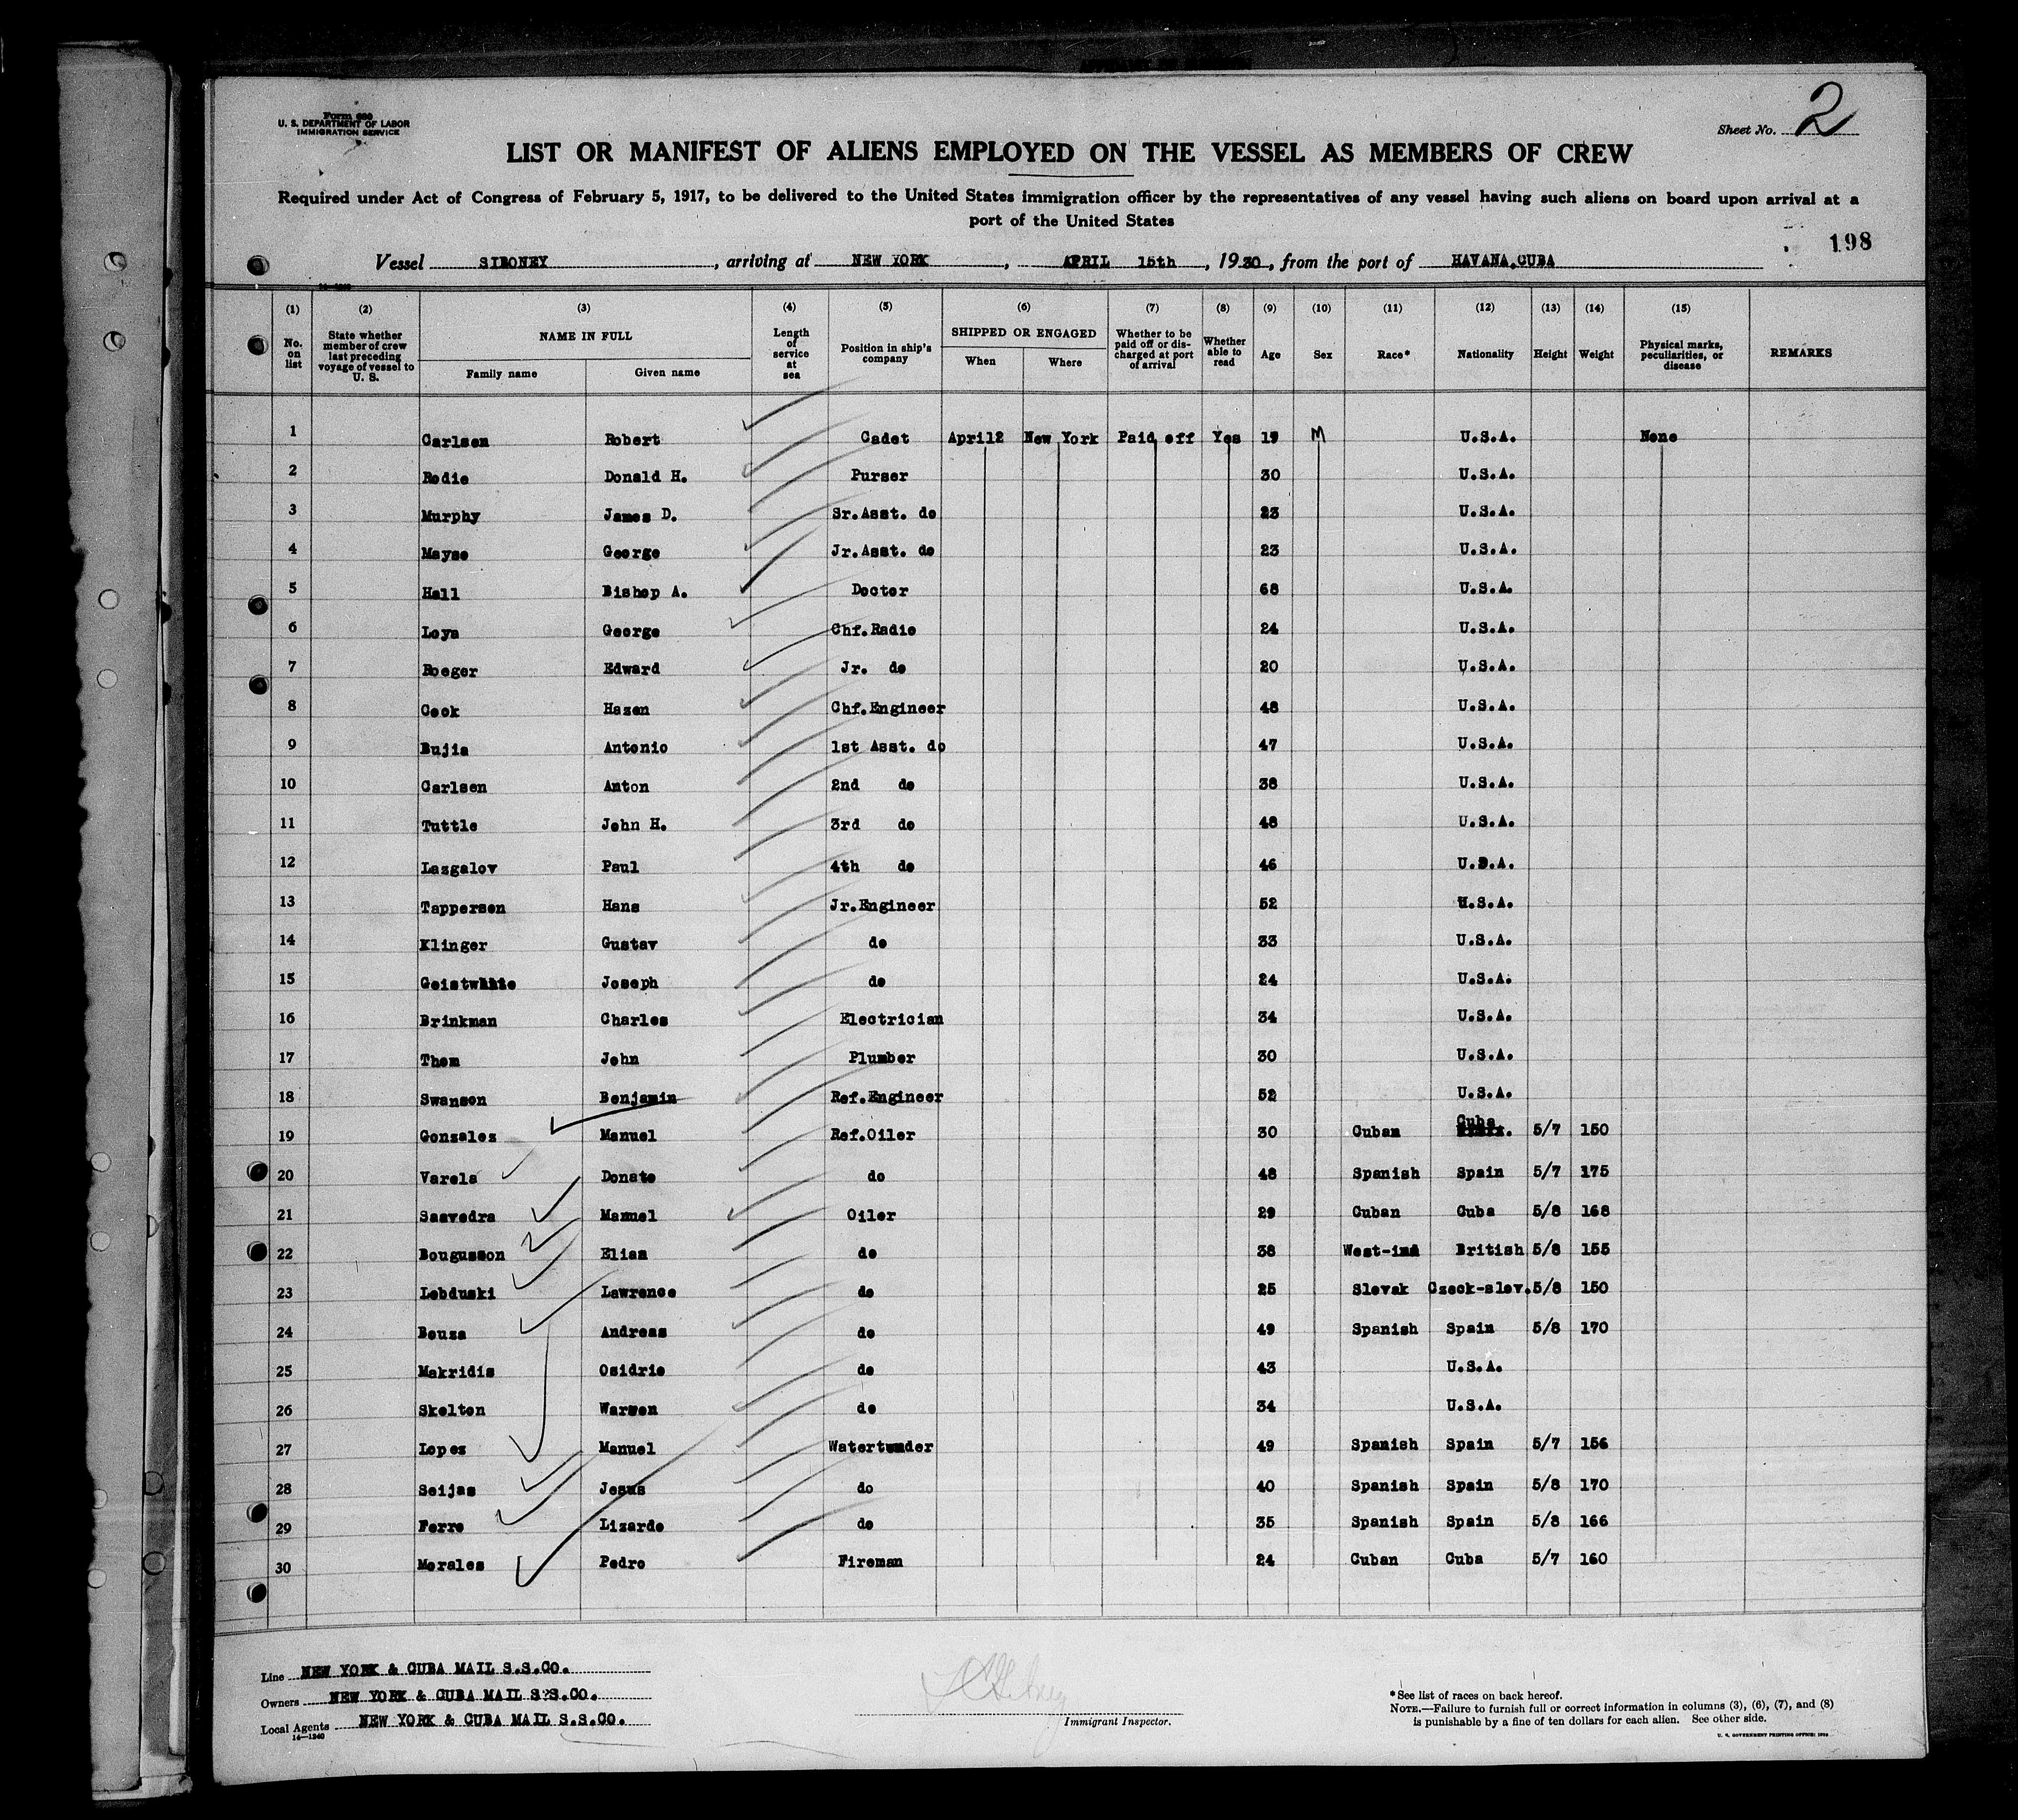 Form 680
U. S. DEPARTMENT OF LABOR
IMMIGRATION SERVICE
Sheet No. 2
LIST OR MANIFEST OF ALIENS EMPLOYED ON THE VESSEL AS MEMBERS OF CREW
Required under Act of Congress of February 5, 1917, to be delivered to the United States immigration officer by the representatives of any vessel having such aliens on board upon arrival at a
port of the United States
198
Vessel SIBONEY, arriving at NEW YORK, APRIL 15th, 1930, from the port of HAVANA,CUBA
(1) (2) (3) (4) (5) (6) (7) (8) (9) (10) (11) (12) (13) (14) (15)
No. on list
State whether member of crew last preceding voyage of vessel to U. S.
NAME IN FULL
Family name Given name
Length of service at sea
Position in ship's company
SHIPPED OR ENGAGED
When Where
Whether to be paid off or discharged at port of arrival
Whether able to read
Age Sex Race* Nationality Height Weight
Physical marks, peculiarities, or disease
REMARKS
1 Carlsen Robert Cadet April2 New York Paid off Yes 19 M U.S.A. None
2 Rodie Donald H. Purser 30 U.S.A.
3 Murphy James D. Sr.Asst. do 23 U.S.A.
4 Mayse George Jr.Asst. do 23 U.S.A.
5 Hall Bishop A. Doctor 68 U.S.A.
6 Loya George Chf.Radio 24 U.S.A.
7 Roeger Edward Jr. do 20 U.S.A.
8 Cook Hazen Chf.Engineer 48 U.S.A.
9 Bujia Antonio 1st Asst. do 47 U.S.A.
10 Carlsen Anton 2nd do 38 U.S.A.
11 Tuttle John H. 3rd do 48 U.S.A.
12 Lazgalov Paul 4th do 46 U.S.A.
13 Tappersen Hans Jr.Engineer 52 U.S.A.
14 Klinger Gustav do 33 U.S.A.
15 Joseph do 24 U.S.A.
16 Brinkman Charles Electrician 34 U.S.A.
17 Thom John Plumber 30 U.S.A.
18 Swanson Benjamin Ref.Engineer 52 U.S.A.
19 Gonzalez Manuel Ref.Oiler 30 Cuban Cuba 5/7 150
20 Varela Donato do 48 Spanish Spain 5/7 175
21 Saavedra Manuel Oiler 29 Cuban Cuba 5/8 168
22 Bougusson Elias do 38 West-ind British 5/8 155
23 Lebduski Lawrence do 25 Slovak Czeck-slov. 5/8 150
24 Bouza Andreas do 49 Spanish Spain 5/8 170
25 Makridis Osidrio do 43 U.S.A.
26 Skelton Warren do 34 U.S.A.
27 Lopez Manuel Watertender 49 Spanish Spain 5/7 156
28 Seijas Jesus do 40 Spanish Spain 5/8 170
29 Ferro Lizardo do 35 Spanish Spain 5/8 166
30 Morales Pedro Fireman 24 Cuban Cuba 5/7 160
Line NEW YORK & CUBA MAIL S.S.CO.
Owners NEW YORK & CUBA MAIL S.S.CO.
Local Agents NEW YORK & CUBA MAIL S.S.CO.
14—1240
Immigrant Inspector.
*See list of races on back hereof.
NOTE.—Failure to furnish full or correct information in columns (3), (6), (7), and (8)
is punishable by a fine of ten dollars for each alien. See other side.